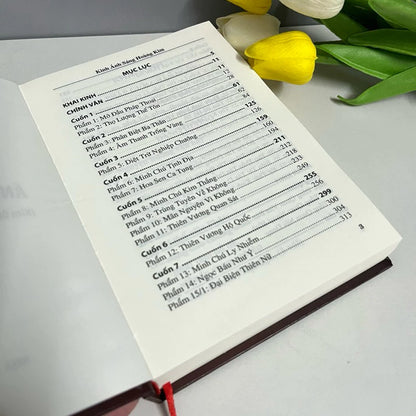 Kinh Ánh Sáng Hoàng Kim
MỤC LỤC
KHAI KINH 5
CHÍNH VĂN 11
Cuốn 1 11
Phẩm 1: Mở Đầu Pháp Thoại 17
Phẩm 2: Thọ Lượng Thế Tôn 28
Cuốn 2 61
Phẩm 3: Phân Biệt Ba Thân 62
Phẩm 4: Âm Thanh Trống Vàng 84
Cuốn 3 125
Phẩm 5: Diệt Trừ Nghiệp Chướng 126
Cuốn 4 159
Phẩm 6: Minh Chú Tịnh Địa 160
Phẩm 7: Hoa Sen Ca Tụng 194
Cuốn 5 211
Phẩm 8: Minh Chú Kim Thắng 212
Phẩm 9: Trùng Tuyên Về Không 218
Phẩm 10: Mãn Nguyện Vì Không 233
Phẩm 11: Thiên Vương Quan Sát 249
Cuốn 6 255
Phẩm 12: Thiên Vương Hộ Quốc 256
Cuốn 7 299
Phẩm 13: Minh Chú Ly Nhiễm 300
Phẩm 14: Ngọc Báu Như Ý 304
Phẩm 15/1: Đại Biện Thiên Nữ 313
3